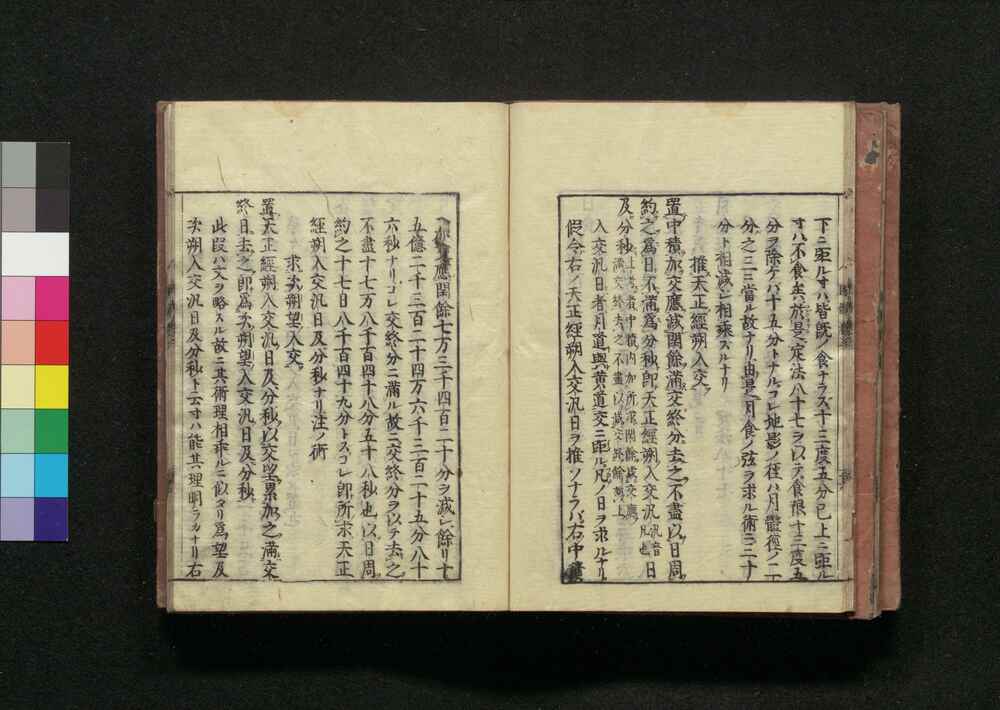 下ニ距ルヿハ皆既ノ食ナラズ十三度五分已上ニ距ル
ヿハ不食矣於是定法八十七ヲ以テ食限十三度五
分ヲ除ケバ十五分トナルコレ地影ノ径ハ月體徑ノ二
分之三ニ當ル故ナリ由是月食ノ弦ヲ求ル術ニ三十
分ト相減シ相乘スルナリ
推天正經朔入交
置中積加交應減閏餘滿交終分去之不盡以日周
約之爲日不滿爲分秒即天正經朔入交汎日
汎音凡也
及分秒
上考者中積内加所求閏餘減交應
滿交終去之不盡以減交終餘如上
入交汎日者月道與黄道交ニ距ル凡ノ日ヲ求ルナリ
假令右ノ天正經朔入交汎日ヲ推ソナラバ右中積
應閏餘七万三十四百二十分ヲ減シ餘リ十
五億二十三百二十四万六千三百二十五分八十
六秒ナリコレ交終分ニ滿ル故ニ交終分ヲ以テ去之
不盡十七万八千百四十八分五十八秒也以日周
約之十七日八千百四十九分トスコレ即所求天正
經朔入交汎日及分秒ナリ注ノ術
求次朔望入交
置天正經朔入交汎日及分秒以交望累加之滿交
終日去之即爲次朔望入交汎日及分秒
此段ハ文ヲ略スル故ニ其術理相乖ルニ似タリ爲望及
次朔入交汎日及分秒ト云ヿハ能其理明ラカナリ右